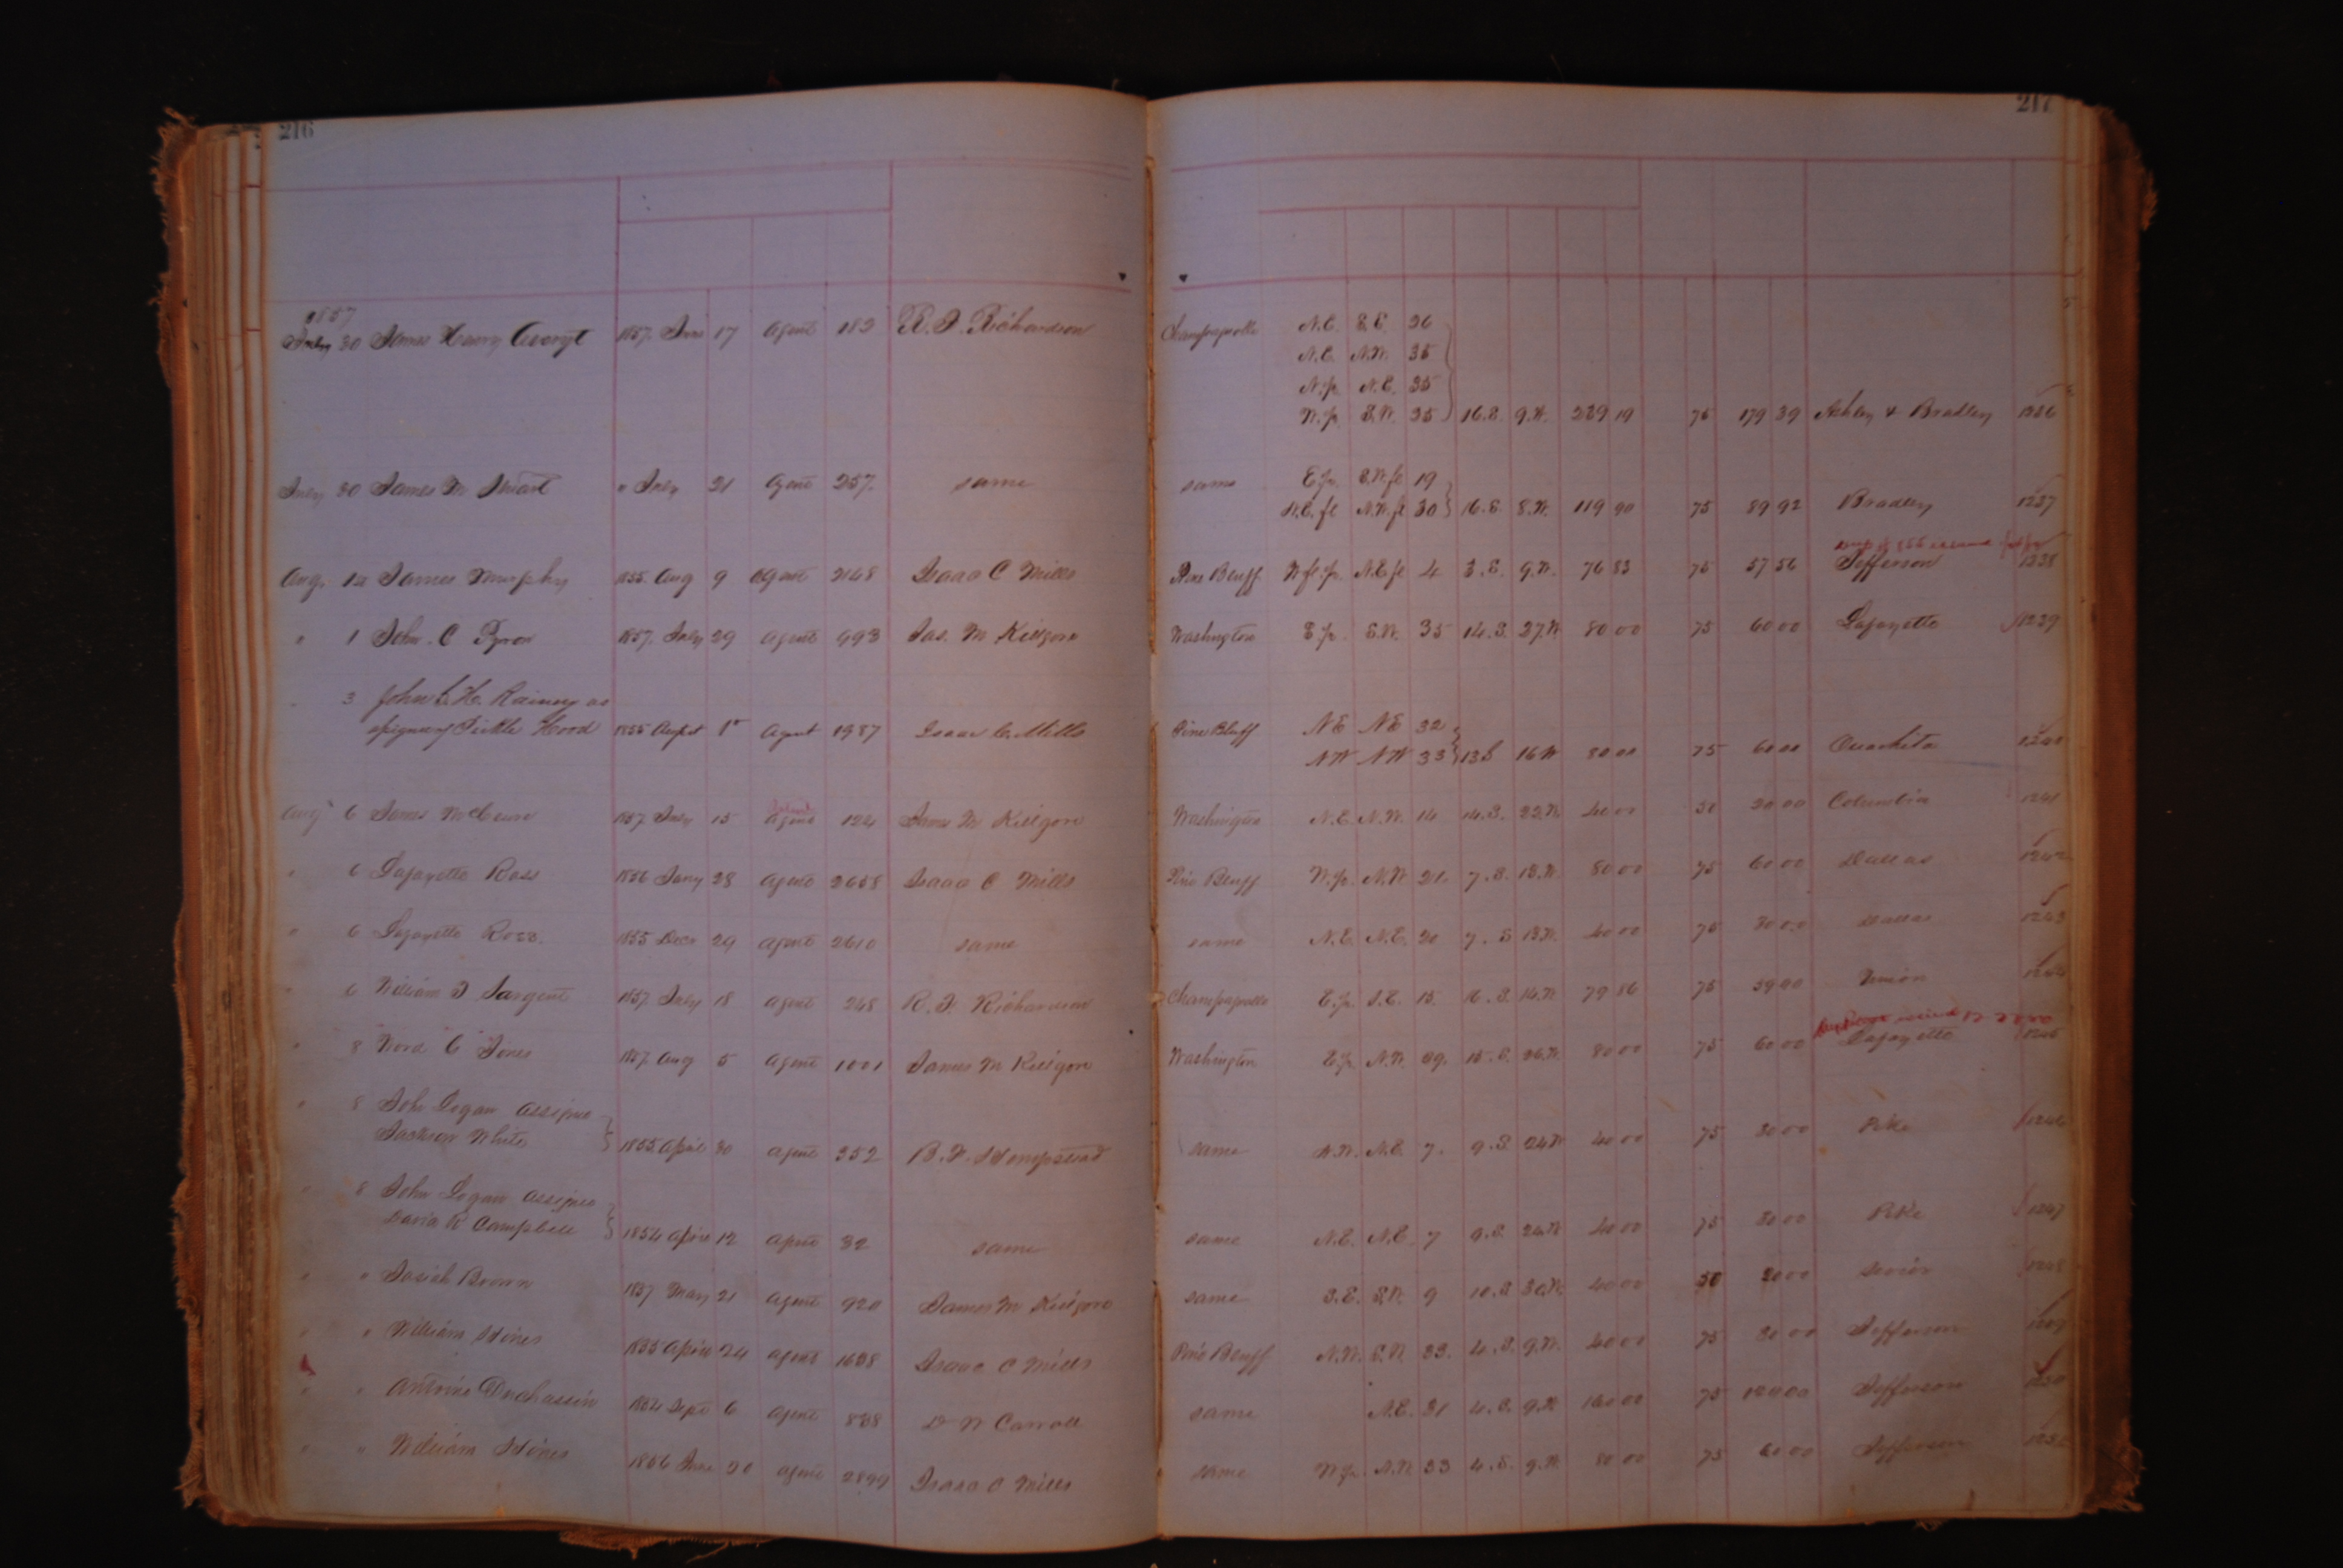 216
217
1857
July 30 James Henry Averyt 1857. June 17 Agent 182 R. F. Richardson Champagnolle N.E. S.E. 26
N.E. N.W. 35
N.p. N.E. 35
W.p. S.W. 35 16.S. 9.W. 239 19 75 179 39 Ashley & Bradley 1236
July 30 James M Stuart " July 21 Agent 257. same same E.p. S.W.fl 19
N.E.fl N.W.fl 30 16.S. 8.W. 119 90 75 89 92 Bradley 1237
Aug. 1st James Murphy 1855. Aug 9 Agent 2168 Isaac C Mills Pine Bluff W fl.p. N.E fl 4 3.S. 9.W. 76 83 75 57 56 Jefferson 1238
" 1 John. C Pyron 1857. July 29 Agent 993 Jas. M Killgore Washington E.p. S.W. 35 14.S. 27.W 80 00 75 60 00 Lafayette 1239
" 3 John C. H. Rainey as
signee of Pickle Hood 1855 August 1st Agent 1987 Isaac C. Mills Pine Bluff NE NE 32
NW NW 33 13S 16W 80 00 75 60 00 Ouachita 1240
Aug 6 James McClure 1857 July 15 Agent 124 James M Killgore Washington N.E. N.W. 14 14.S. 22.W. 40 00 50 20 00 Columbia 1241
" 6 Lafayette Ross 1856 Jany 28 Agent 2658 Isaac C Mills Pine Bluff W.p. N.W 21. 7.S. 13.W. 80 00 75 60 00 Dallas 1242
" 6 Lafayette Ross. 1855 Decr 29 Agent 2610 same same N.E. N.E. 20 7. S 13.W. 40 00 75 30 00 Dallas 1243
" 6 William F Sargent 1857. July 18 Agent 248 R. F. Richardson Champagnolle E.p. S.E. 15. 16.S. 14.W 79 86 75 59 90 Union 1244
" 8 Word C Jones 1857. Aug 5 Agent 1001 James M Killgore Washington E.p. N.W. 09. 15.S. 26.W. 80 00 75 60 00 Lafayette 1245
" 8 John Logan Assignee
Jackson White 1855 April 30 Agent 352 B. F. Hempstead same N.W. N.E. 7. 9.S. 24W 40 00 75 30 00 Pike 1246
" 8 John Logan Assignee
David R Campbell 1854 April 12 Agent 32 same same N.E. N.E. 7 9.S. 24.W 40 00 75 30 00 Pike 1247
" " Josiah Brown 1857 May 21 Agent 920 James M Killgore same S.E. S.W. 9 10.S 30.W. 40 00 50 20 00 Sevier 1248
" " William Hines 1855 April 24 Agent 1638 Isaac C Mills Pine Bluff N.W. S.W. 33. 4.S. 9.W. 40 00 75 30 00 Jefferson 1249
" " Antoine Duchassin 1854 Sept 6 Agent 838 D W Carroll same N.E. 31 4.S. 9.W 160 00 75 120 00 Jefferson 1250
" " William Hines 1856 June 20 Agent 2899 Isaac C Mills same W.p. N.W. 33 4.S. 9.W. 80 00 75 60 00 Jefferson 1251